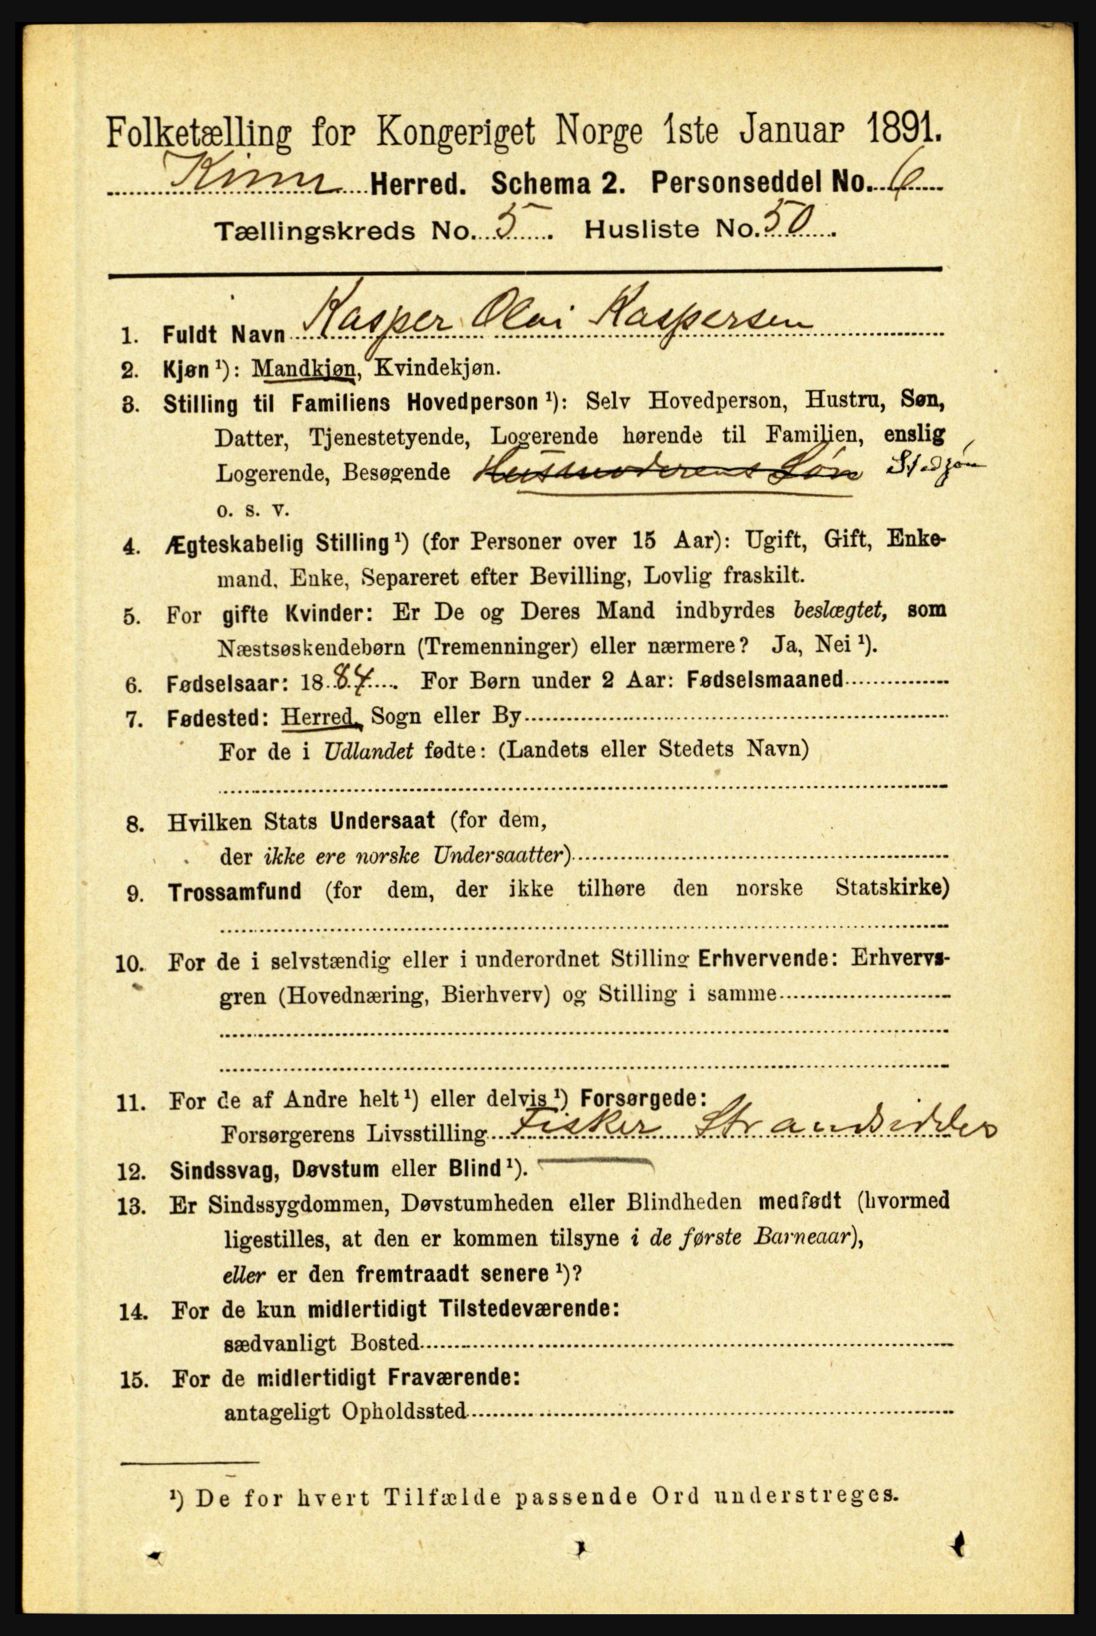 Folketælling for Kongeriget Norge 1ste Januar 1891.
Kinn Herred. Schema 2. Personseddel No. 6
Tællingskreds No. 5. Husliste No. 50.
1. Fuldt Navn Kasper Olai Kaspersen
2. Kjøn ¹): Mandkjøn, Kvindekjøn.
3. Stilling til Familiens Hovedperson ¹): Selv Hovedperson, Hustru, Søn,
Datter, Tjenestetyende, Logerende hørende til Familien, enslig
Logerende, Besøgende Husmoderens Søn Stedsøn
o. s. v.
4. Ægteskabelig Stilling ¹) (for Personer over 15 Aar): Ugift, Gift, Enke-
mand, Enke, Separeret efter Bevilling, Lovlig fraskilt.
5. For gifte Kvinder: Er De og Deres Mand indbyrdes beslægtet, som
Næstsøskendebørn (Tremenninger) eller nærmere? Ja, Nei ¹).
6. Fødselsaar: 1884. For Børn under 2 Aar: Fødselsmaaned
7. Fødested: Herred, Sogn eller By
For de i Udlandet fødte: (Landets eller Stedets Navn)
8. Hvilken Stats Undersaat (for dem,
der ikke ere norske Undersaatter)
9. Trossamfund (for dem, der ikke tilhøre den norske Statskirke)
10. For de i selvstændig eller i underordnet Stilling Erhvervende: Erhvervs-
gren (Hovednæring, Bierhverv) og Stilling i samme
11. For de af Andre helt ¹) eller delvis ¹) Forsørgede:
Forsørgerens Livsstilling Fisker Strandsidder
12. Sindssvag, Døvstum eller Blind ¹).
13. Er Sindssygdommen, Døvstumheden eller Blindheden medfødt (hvormed
ligestilles, at den er kommen tilsyne i de første Barneaar),
eller er den fremtraadt senere ¹)?
14. For de kun midlertidigt Tilstedeværende:
sædvanligt Bosted
15. For de midlertidigt Fraværende:
antageligt Opholdssted
¹) De for hvert Tilfælde passende Ord understreges.